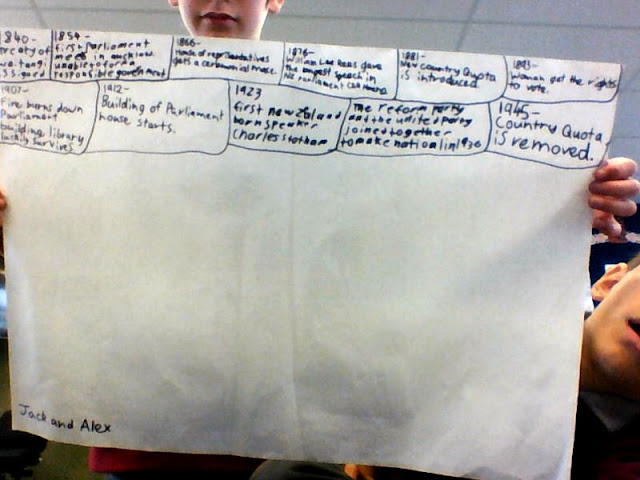 1840-
treaty of
waitangi
is signed
1854-
first parliament
meets in auckland
unable to form a
responsible government
1866-
House of representatives
gets a ceremonial mace.
1876-
William Lee Rees gave
the longest speech in
NZ parliament
1881-
New country Quota
is introduced
1893-
Woman get the rights
to vote.
1907-
Fire burns down
Parliament
building library
luckily survives
1912-
Building of Parliament
house starts.
1923
first new zealand
born speaker
Charles statham
The reform party
and the united party
joined together
to make nation in 1936
1945-
Country Quota
is removed.
Jack and Alex